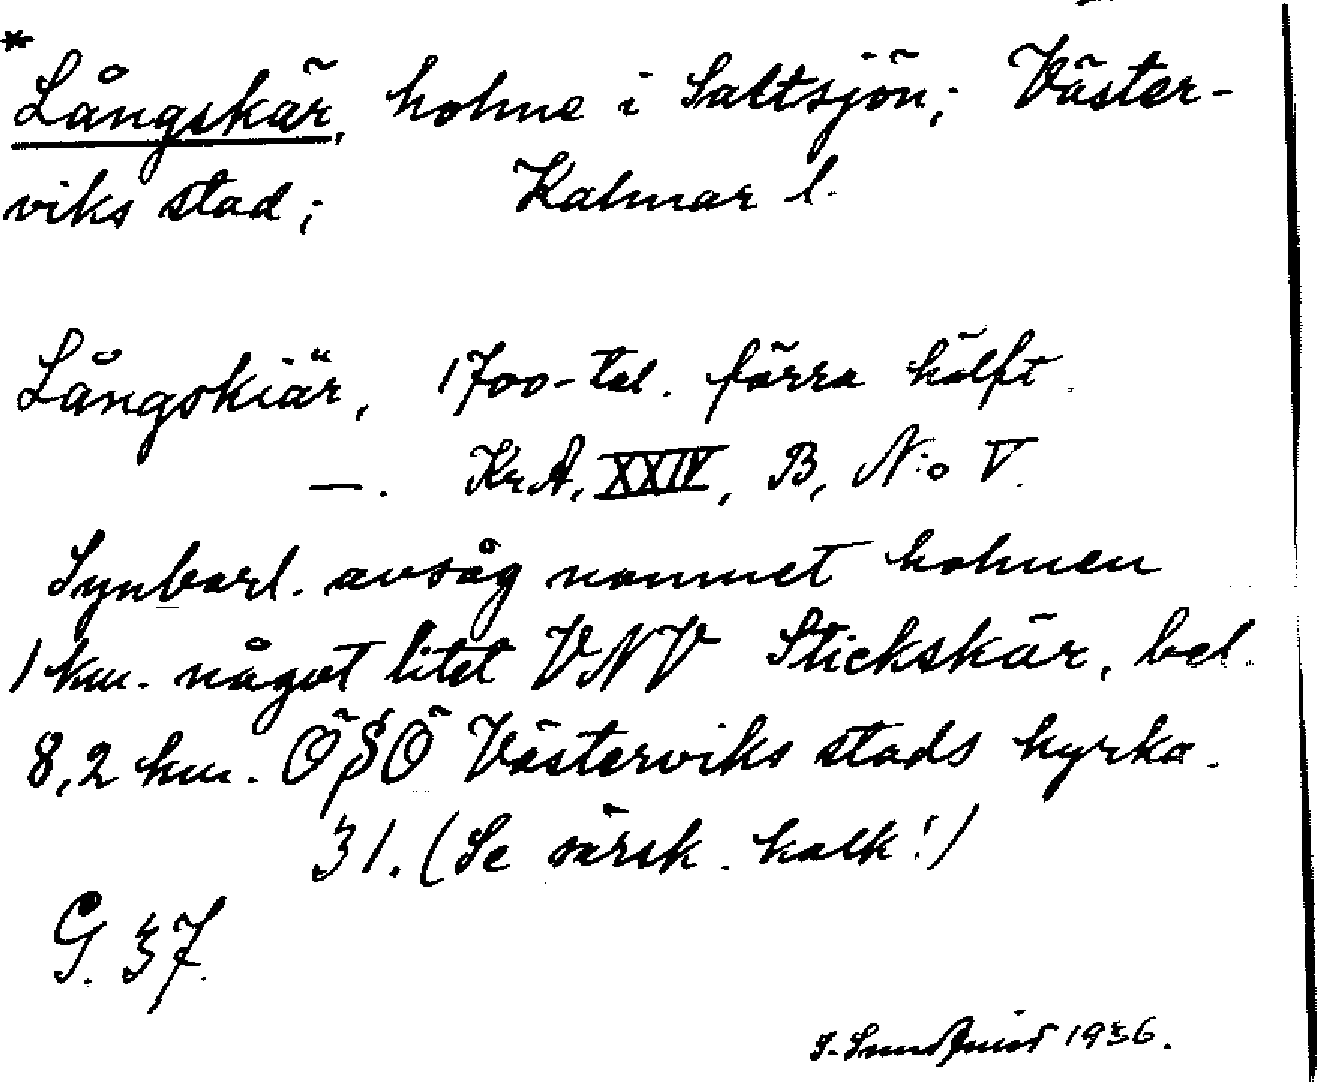 * Långskär, holme i Saltsjön; Väster-
viks stad; Kalmar l.
Långskiär, 1700-tal. förra hälft.
—. KrA, XXIV, B, N:o V.
Synbarl. avsåg namnet holmen
1 km. något litet VNV Stickskär, bel.
8,2 km. ÖSÖ Västerviks stads kyrka.
31. (Se särsk. kalk!)
G. 37.
1936.